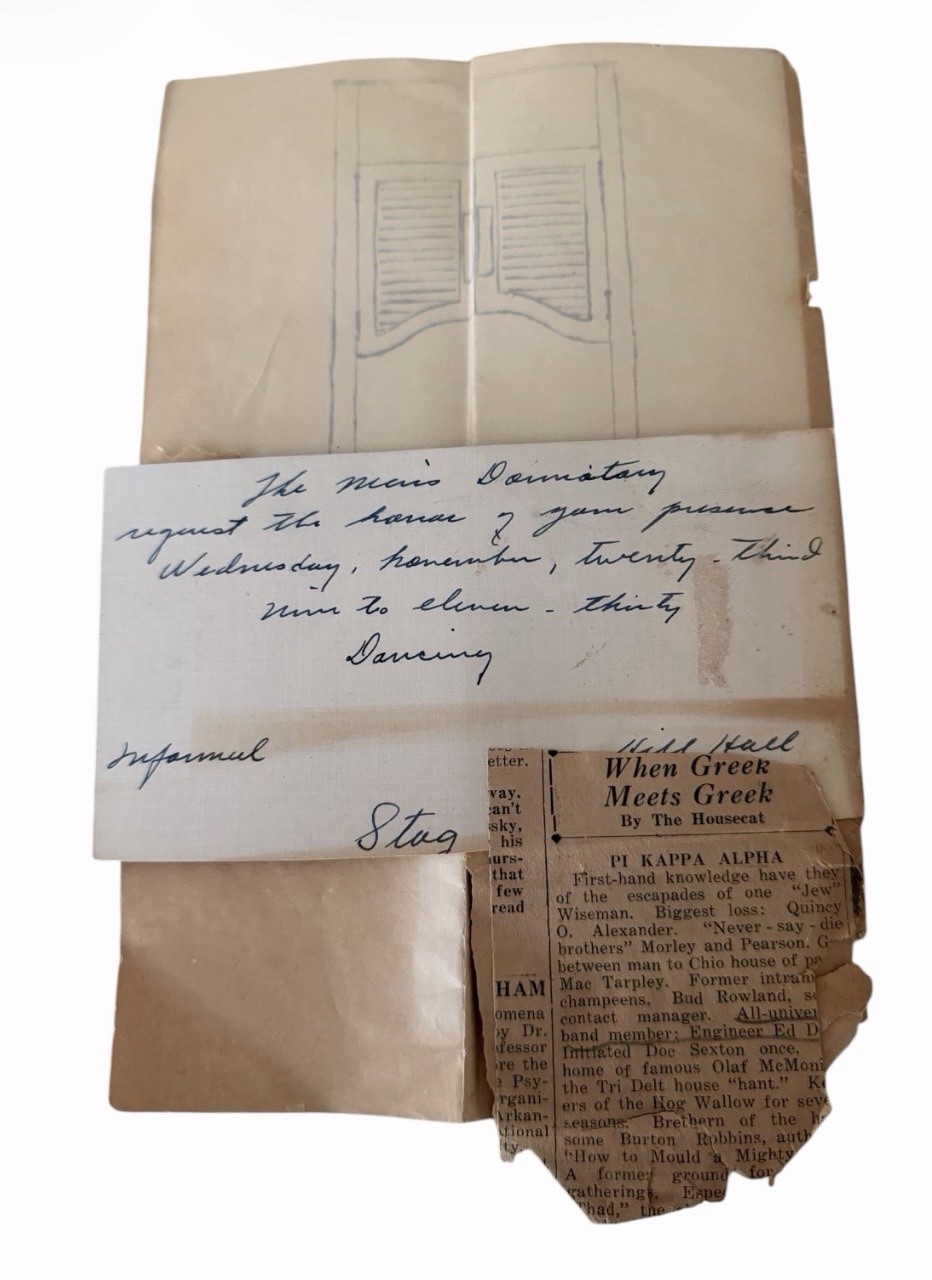 The Men's Dormatory
request the honor of your presense
Wednesday, November, twenty-third
nine to eleven-thirty
Dancing
Informal
Hill Hall
Stag
etter.
way.
can't
sky,
his
urs-
that
few
read
HAM
omena
by Dr.
fessor
re the
e Psy-
rgani-
Arkan-
tional
ty.
When Greek
Meets Greek
By The Housecat
PI KAPPA ALPHA
First-hand knowledge have they
of the escapades of one "Jew"
Wiseman. Biggest loss: Quincy
O. Alexander. "Never-say-die
brothers" Morley and Pearson. G
between man to Chio house of pa
Mac Tarpley. Former intram
champeens. Bud Rowland, s
contact manager. All-univer
band member: Engineer Ed D
Initiated Doc Sexton once.
home of famous Olaf McMoni
the Tri Delt house "hant." Ke
ers of the Hog Wallow for seve
seasons. Brethern of the h
some Burton Robbins, auth
"How to Mould a Mighty
A former ground for
gatherings. Espe
Thad," the